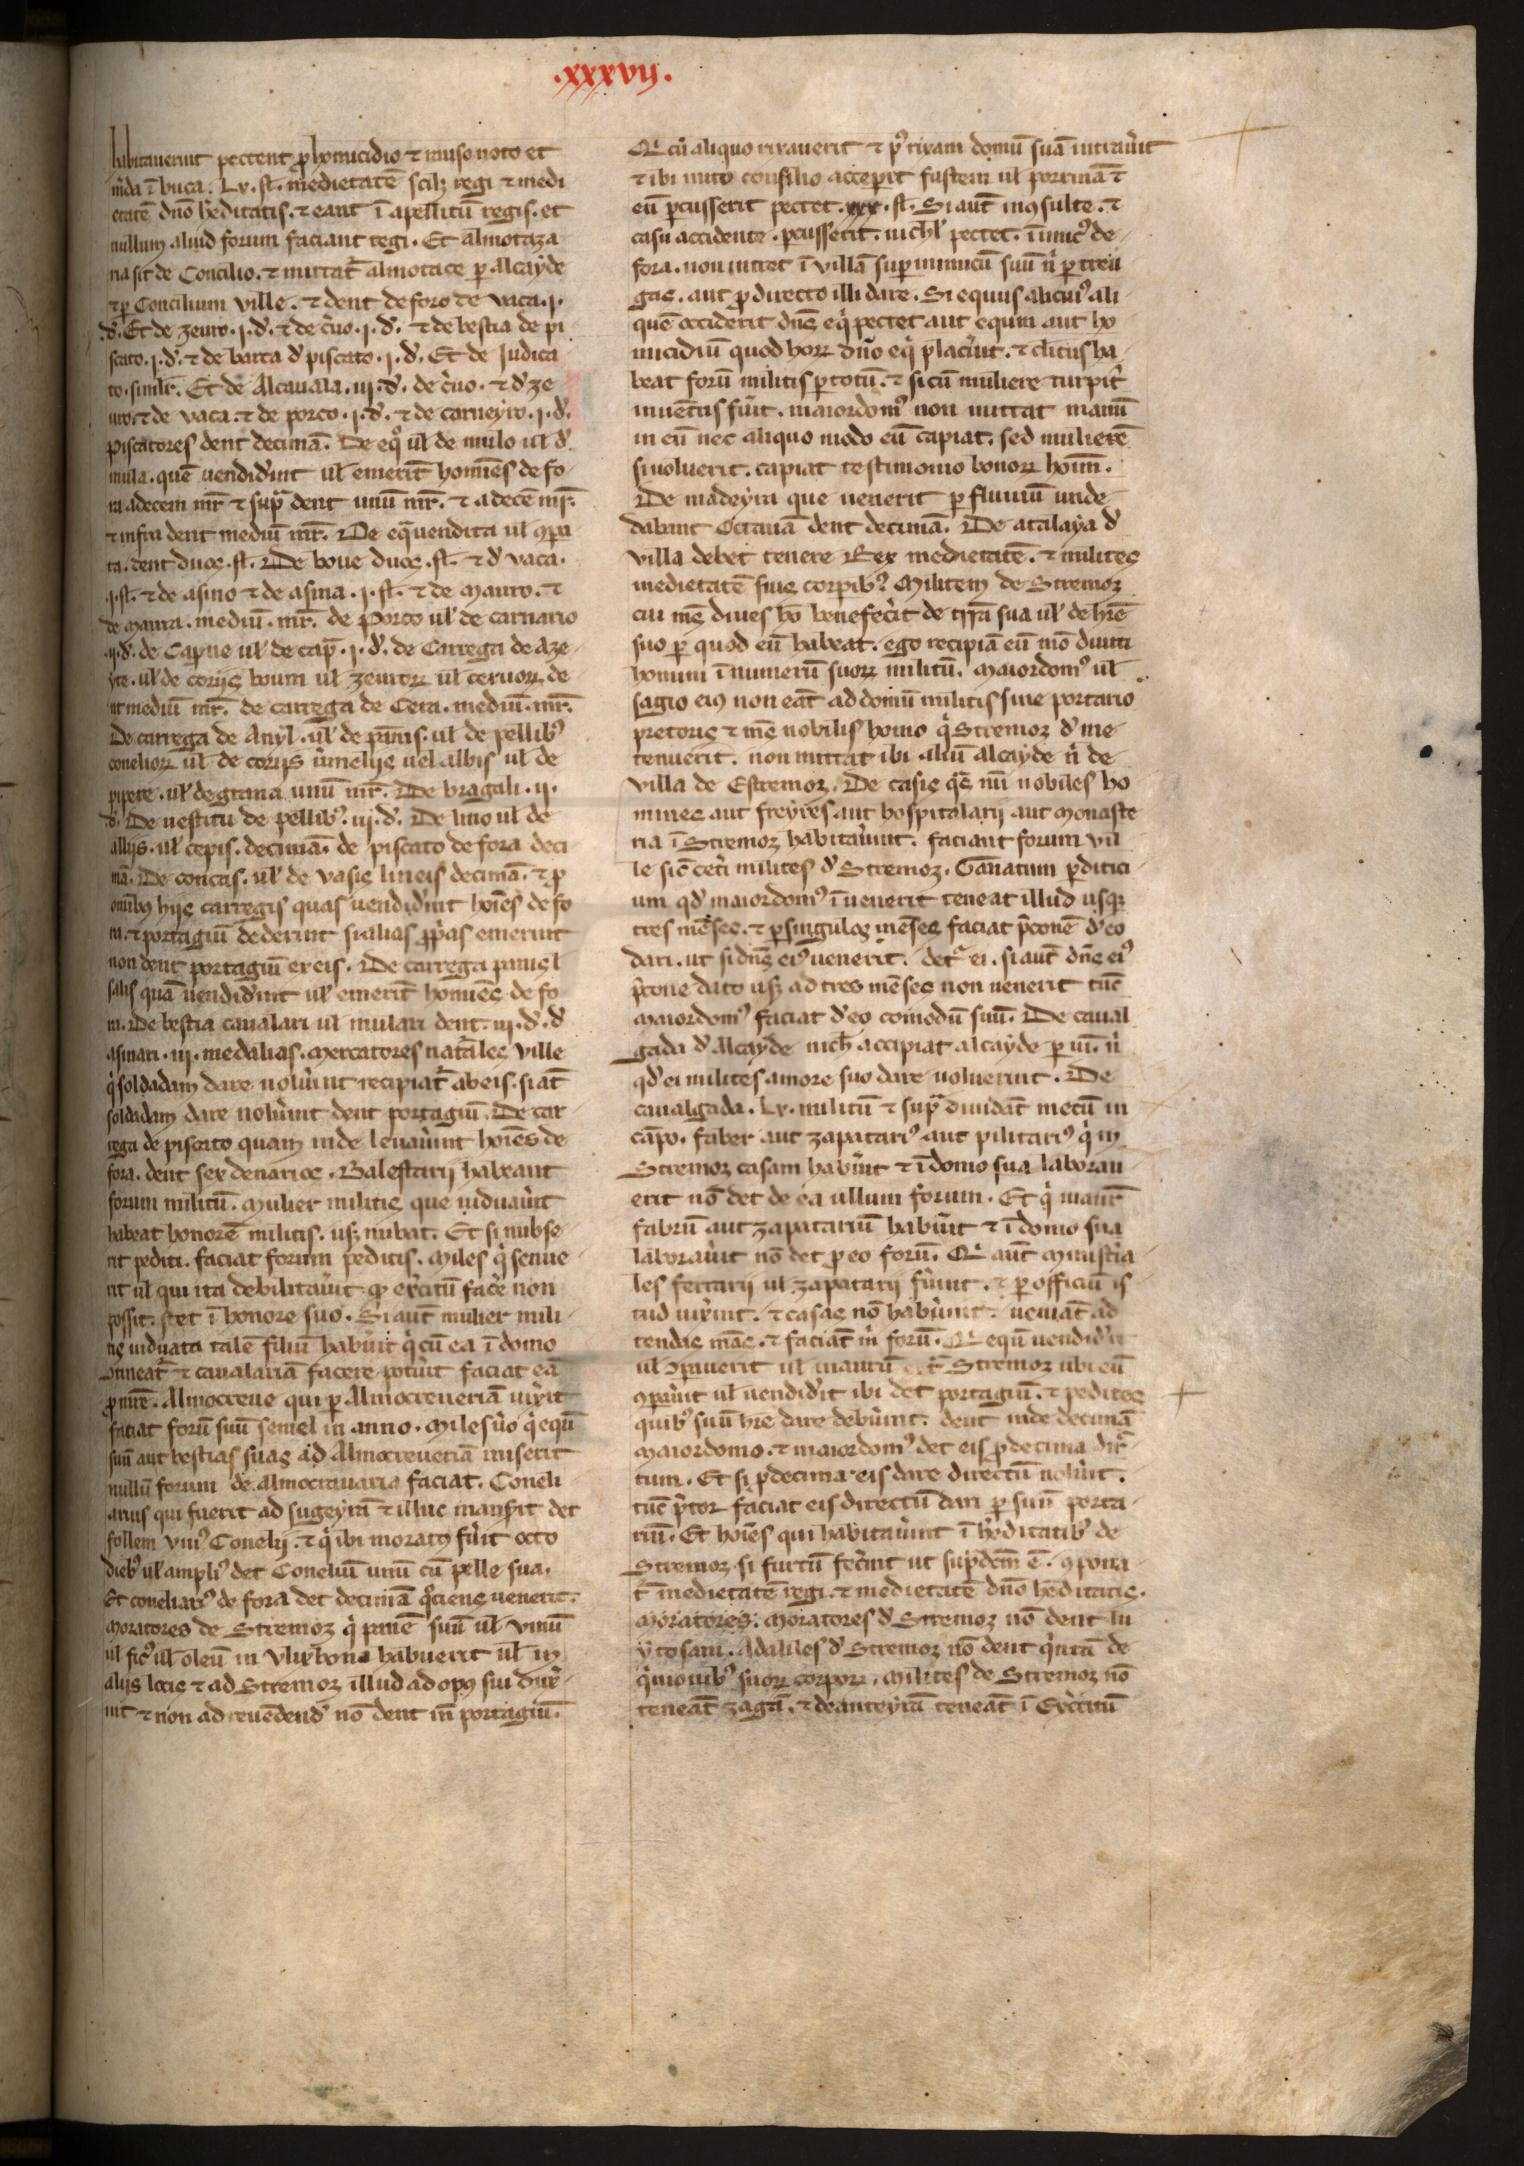 .xxxvij.
habitauerint pectent p homicidio ⁊ rauso noto et
m̃da ĩ buca. Lx. sƚ. medietatẽ scilꝫ regi ⁊ medi
etatẽ dño h̃editatis. ⁊ eant ĩ apellitũ regis. et
nullum aliud forum faciant regi. Et almotaza
ria sit de Concilio. ⁊ mittat̃ almotace p Alcayde
⁊ p Concilium ville. ⁊ dent de foro de vaca .j.
d̃. Et de zeuro .j. d̃. ⁊ de c̃uo .j. d̃. ⁊ de bestia de pi
scato .j. d̃. ⁊ de barca d̃ piscato .j. d̃. Et de Judica
to. similr̃. Et de Alcauala .iij. d̃. de c̃uo. ⁊ d̃ ze
uro. ⁊ de vaca. ⁊ de porco .j. d̃. ⁊ de carneyro .j. d̃.
Piscatores dent decimã. De eq̊ uƚ de mulo uƚ d̃
mula. quẽ uendid̃int uƚ emerĩt homines de fo
ra a decem mr̃ ⁊ sup̃ dent unũ mr̃. ⁊ a decẽ mr̃.
⁊ infra dent mediũ mr̃. De eq̃ uendita uƚ ꝯpa
ta. dent duos .sƚ. De boue duos .sƚ. ⁊ d̃ vaca.
.j. sƚ. ⁊ de asino ⁊ de asina .j. sƚ. ⁊ de mauro. ⁊
de maura. mediũ. mr̃. de Porco uƚ de carnario
.ij. d̃. de Caprie uƚ de cap̃. .j. d̃. de Carrega de aze
yte. uƚ de corijs boum uƚ zeuroꝝ uƚ ceruoꝝ de
nt mediũ mr̃. de carrega de Cera. mediũ. mr̃.
De carrega de Anyl. uƚ de pannis. uƚ de pellib᷒
conelioꝝ uƚ de corijs ũmelijs uel albis uƚ de
pipere. uƚ de grana unũ mr̃. De bragali .ij.
d̃. De uestitu de pellib᷒. iij. d̃. De lino uƚ de
allijs. uƚ cepis. decimã. de piscato de fora deci
mã. De concas. uƚ de vasis lineis decimã. ⁊ p
omĩbꝫ hijs carregis quas uendid̃int hoĩes de fo
ra. ⁊ portagiũ dederint si alias p̃p̃as emerint
non dent portagiũ ex eis. De carrega panis uƚ
salis quã uendid̃int uƚ emerĩt homines de fo
ra. De bestia caualari uƚ mulari dent. iij. d̃. d̃
asinari .iij. medalias. Mercatores nat̃ales ville
q̃ soldadam dare uoluĩnt recipiat̃ ab eis. si aũt
soldadam dare noluĩnt dent portagiũ. De car
rega de piscato quam inde leuaũint hoĩes de
fora. dent sex denarios. Balestarij habeant
forum militũ. Mulier militis que uiduaũit
habeat honorẽ militis. usꝫ nubat. Et si nubse
rit pediti. faciat forum peditis. Miles q̃ senue
rit uƚ qui ita debilitaũit qᵈ ex̃citũ fac̃e non
possit. stet ĩ honore suo. Si aũt mulier mili
tis uiduata talẽ filiũ habũit q̃ cũ ea ĩ domo
ꝯtineat̃ ⁊ caualariã facere potũit faciat eã
p mr̃e. Almocreue qui p Almocreueriã uix̃it
faciat forũ suũ semel in anno. Miles ũo q̃ equũ
suũ aut bestias suas ad Almocreueriã miserit
nullũ forum de almocrauaria faciat. Coneli
arius qui fuerit ad sugeyrã ⁊ illuc mans̃it det
follem vni᷒ Conelij. ⁊ q̃ ibi moratꝫ fũit octo
dieb᷒ uƚ ampli᷒ det Coneliũ unũ cũ pelle sua.
Et coneliari᷒ de fora det decimã q̊ciens uenerit.
Moratores de Stremoz q̃ panẽ suũ uƚ vinũ
uƚ fic᷒ uƚ oleũ in Vlixbona habuerit uƚ in
alijs locis ⁊ ad Stremoz illud ad opꝫ sui dux̃i
nt ⁊ non ad reuẽdend̃ nõ dent iñ portagiũ.
Q̃ cũ aliquo rixauerit ⁊ p᷒ rixam domũ suã intraũit
⁊ ibi inito consilio acceperit fustem uƚ porrinã ⁊
eũ percusserit pectet. xxx. sƚ. Si aũt inꝯsulte. ⁊
casu accidente. pcusserit. nichƚ pectet. inimic᷒ de
fora. non intret ĩ villã sup inimicũ suũ n̊ p treu
gas. aut p directo illi dare. Si equus alicui᷒ ali
quẽ occiderit dñs eq̃ pectet aut equm aut ho
micidiũ quod hoꝝ dño eq̃ placũit. ⁊ clicus ha
beat forũ militis p totũ. ⁊ si cũ muliere turpit̃
inuẽtus fũit. maiordom᷒ non mittat manũ
in eũ nec aliquo modo eũ capiat. sed mulierẽ
si uoluerit. capiat testimonio bonoꝝ hoĩm.
De madeyra que uenerit p fluuiũ unde
dabant Octauã dent decimã. De atalaya d̃
villa debet tenere Rex medietatẽ. ⁊ milites
medietatẽ suis corpib᷒. Militem de Stremoz
cui mẽ diues hõ benefec̃it de t̃ra sua uƚ de h̃re
suo p quod eũ habeat. ego recipiã eũ mõ diuiti
homini ĩ numerũ suoꝝ militũ. Maiordom᷒ uƚ
sagio eiꝫ non eãt ad domũ militis sine portario
pretoris ⁊ mẽ nobilis homo q̃ Stremoz d̃ me
tenuerit. non mittat ibi aliũ Alcayde n̊ de
villa de Estremoz. De casis q̃s mĩ nobiles ho
mines aut freyres aut hospitalarij aut Monaste
ria ĩ Stremoz habũint. faciant forum vil
le sic̃ cet̃i milites d̃ Stremoz. Ganatum pditici
um qd̃ maiordom᷒ ĩuenerit teneat illud usqꝫ
tres mẽses. ⁊ p singulos mẽses faciat p̃conẽ d̃ eo
dari. ut si dñs ei᷒ uenerit. det̃ ei. si aũt dñs ei᷒
p̃cone dato usꝫ ad tres mẽses non uenerit tũc
maiordom᷒ faciat d̃ eo comodũ suũ. De caual
gada d̃ Alcayde nich̃ accipiat alcayde p ui. n̊
qd̃ ei milites amore suo dare uoluerint. De
caualgada. Lx. militũ ⁊ sup̃ diuidãt mecũ in
cãpo. faber aut zapatari᷒ aut pilitari᷒ q̃ in
Stremoz casam habũit ⁊ ĩ domo sua laborau
erit nõ det de ea ullum forum. Et q̃ maur̃
fabrũ aut zapatariũ habũit ⁊ ĩ domo sua
laboraũit nõ det p eo forũ. Q̃ aũt Minist̃ia
les ferrarij uƚ zapatarij fũint. ⁊ p officiũ is
tud uix̃int. ⁊ casas nõ habũint. ueniãt ad
tendas meas. ⁊ faciãt m̃ forũ. Q̃ equũ uendid̃it
uƚ ꝯpauerit uƚ maurũ ext̃ Stremoz ubi eũ
ꝯpaũit uƚ uendid̃it ibi det portagiũ. ⁊ pedites
quib᷒ suũ h̃re dare debũint. dent inde decimã
maiordomo. ⁊ maiordom᷒ det eis p decima dir̃
tum. Et si p decima eis dare directũ noluĩt.
tũc p̃tor faciat eis directũ dari p suũ porta
riũ. Et hoĩes qui habitaũint ĩ h̃editatib᷒ de
Stremoz. si furtũ fec̃int ut sup̃dcm̃ ẽ. ꝯpona
t̃ medietatẽ regi. ⁊ medietatẽ dño h̃editatis.
Moratores. Moratores d̃ Stremoz nõ dent lu
ytosam. Adaliles d̃ Stremoz nõ dent q̃ntã de
q̃nionib᷒ suoꝝ corpoꝝ. Milites de Stremoz nõ
teneãt zagã. ⁊ deanteyrã teneãt ĩ Ex̃citũ